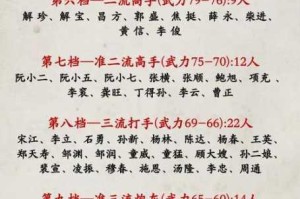 第六档—二流高手(武力79-76):9人
解珍、解宝、吕方、郭盛、焦挺、薛永、柴进、
黄信、李俊
第七档—准二流高手(武力75-70):12人
阮小二、阮小五、阮小七、张横、张顺、鲍旭、项充、
李衮、龚旺、丁得孙、李云、曹正
第八档—三流打手(武力69-66):22人
宋江、李立、石勇、孙新、杨林、陈达、杨春、王英、
郑天寿、邹渊、邹润、童威、童猛、顾大嫂、孙二娘、
裴宣、凌振、穆春、施恩、汤隆、李忠、周通
第九档—准三流炮灰(武力65-60):14人